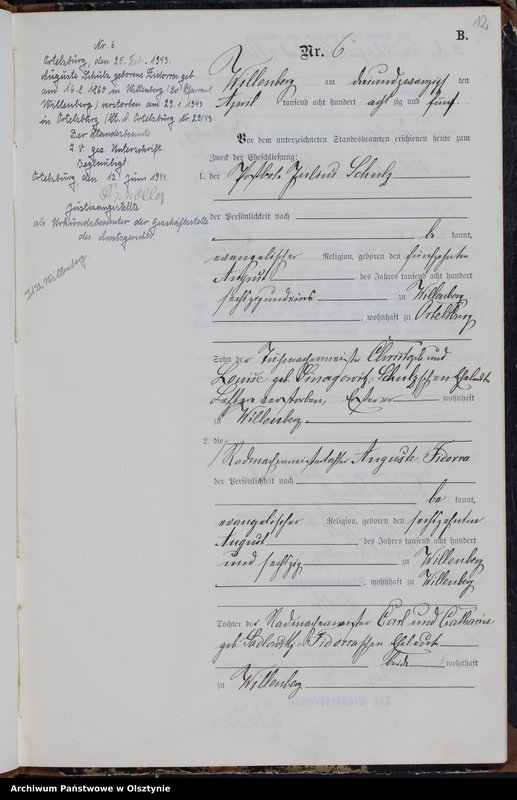 12
B.
Nr. 6
Ortelsburg, den 25. Feb. 1943.
Auguste Schulz geborene Fidorra geb.
am 16.8.1860 in Willenberg
Willenberg) verstorben am 29.1.1943
in Ortelsburg (St. A. Ortelsburg Nr 29/43
Der Standesbeamte
I. V. gez. Unterschrift.
Beglaubigt.
Ortelsburg, den 12. Juni 1944.
Justizangestellte
als Urkundsbeamter der Geschäftsstelle
des Amtsgerichts
Willenberg
Nr. 6.
Willenberg am dreiundzwanzig ten
April tausend acht hundert acht zig und fünf.
Vor dem unterzeichneten Standesbeamten erschienen heute zum
Zweck der Eheschließung:
1. der Postbote Julius Schulz
der Persönlichkeit nach
be kannt,
evangelischer Religion, geboren den fünfzehnten
August des Jahres tausend acht hundert
sechszigundeins zu Willenberg
, wohnhaft zu Ortelsburg
Sohn des Tuchmachermeister Christoph und
Louise geb. Schulzschen Eheleute
Letztere verstorben, Ersterer wohnhaft
zu Willenberg.
2. die
Radmachermeistertochter Auguste Fidorra
der Persönlichkeit nach
be kannt,
evangelischer Religion, geboren den sechszehnten
August des Jahres tausend acht hundert
und sechszig zu Willenberg
, wohnhaft zu Willenberg
Tochter des Radmachermeister Carl und Catharine
geb. Sadlowsky-Fidorraschen Eheleute
beide wohnhaft
zu Willenberg
Archiwum Państwowe w Olsztynie